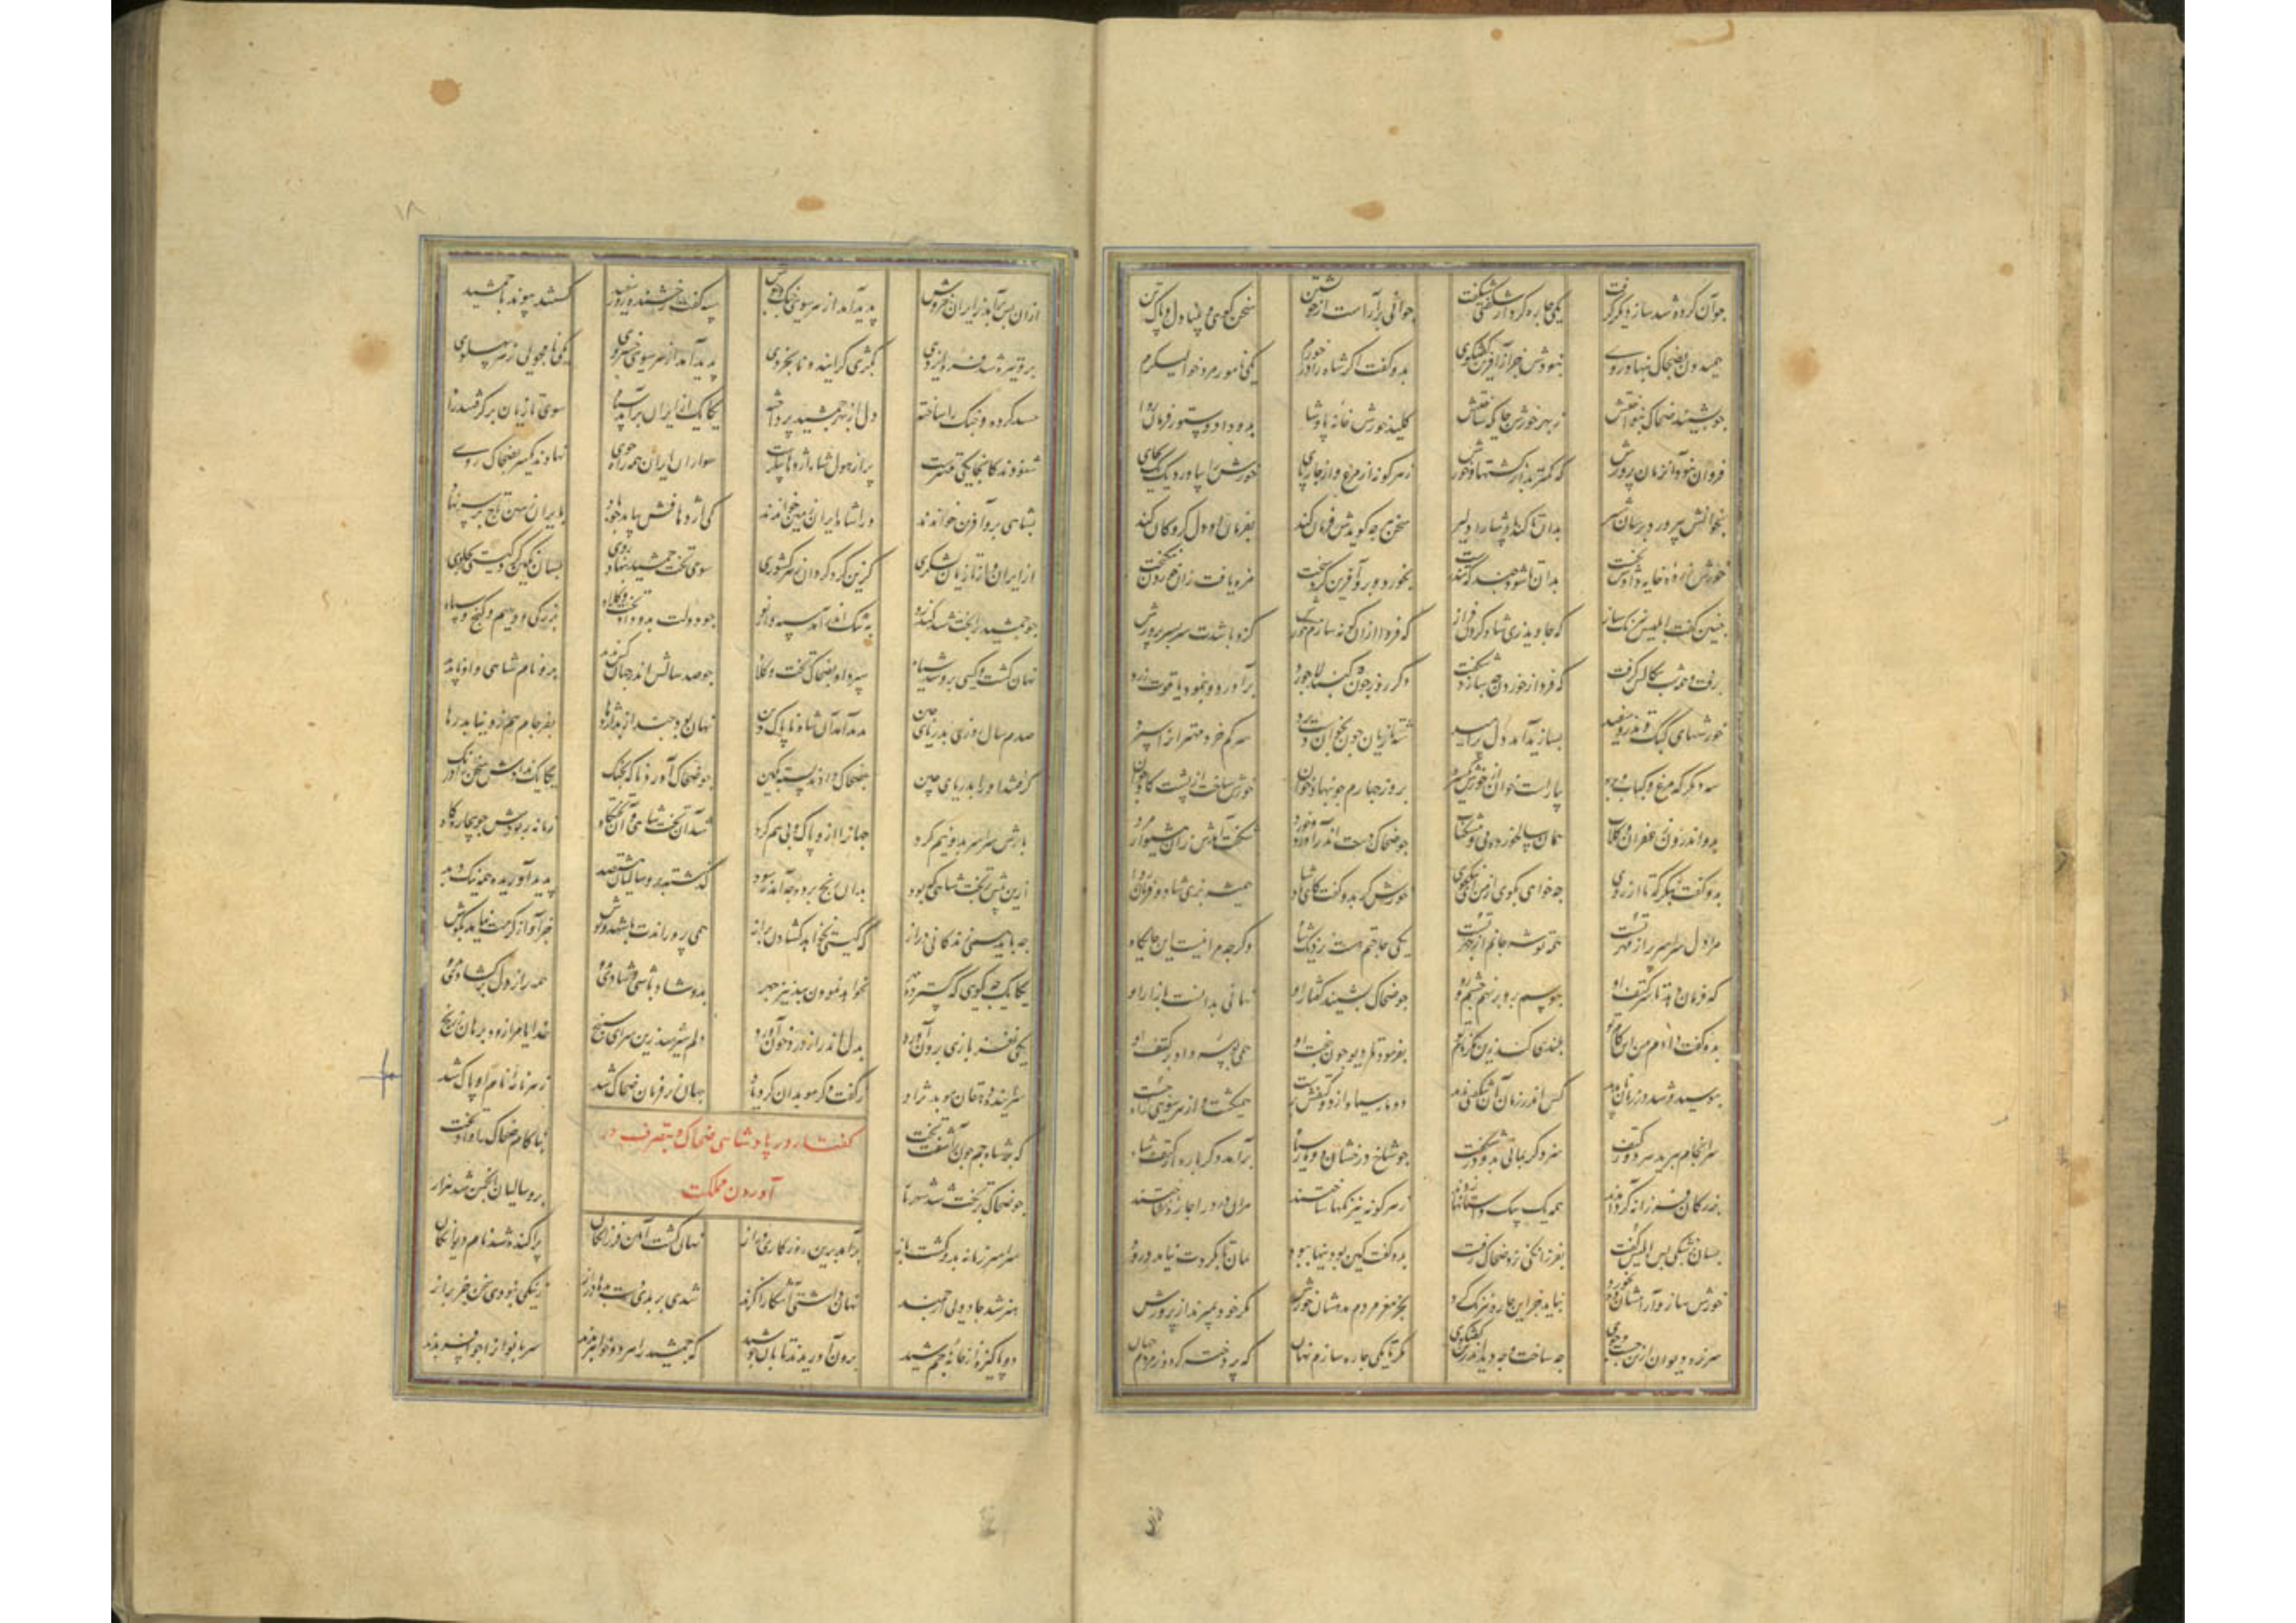 جوآن کرده شد ساز دیکر گرفت یکی چاره کرد از شکفتی شکفت جوانی برآراست از خویشتن سخن کوی و بینا دل و پاک تن
همیدون بضحاک بنهاد روی نبودش جز از آفرین گفتگوی بدو گفت اکر شاه را درخورم یکی نامور مرد خوالیکرم
جو بشنید ضحاک بنواختش ز بهر خورش جایکه ساختش کلید خورش خانه پادشا بدو داد دستور فرمان روا
فراوان نبود آن زمان پرورش که کمتر بد از کشتنیها خورش ز هر کونه از مرغ و از چارپای خورش بیاورد یک یک بجای
بخونش بپرورد برسان شیر بدان تا کند پادشا را دلیر سخن هر جه کویدش فرمان کند بفرمان او دل کروکان کند
خورش زرده خایه دادش نخست بدان تندرست بخورد و برو آفرین کرد سخت مزه یافت زان خوردن نیکبخت
جنین کفت ابلیس نیرنک ساز که جاوید زی شاه کردن فراز که فردا ازان کونه سازم خورش کزو باشدت سربسر پرورش
برفت و همه شب سکالش کرفت که فردا ز خوردن چه سازد شکفت دکر روز چون کنبد لاجورد برآورد و بنمود یاقوت زرد
خورشهای کبک و تذرو سفید بسازید آمد دل پرامید شه تازیان جون بخوان دست برد سر کم خرد مهر او را سپرد
سه دیکر که مرغ و کباب بره بیاراست خوان از خورش یکسره بروز جهارم جو بنهاد خوان خورش ساخت از پشت کاو جوان
بدو اندرون زعفران و کلاب همان سالخورده می و مشک ناب جو ضحاک دست اندر آورد و خورد شکفت آمدش زان هشیوار مرد
بدو کفت بنکر که تا آرزوی چه خواهی بکوی از من ای نیکخوی خورشکر بدو کفت کای پادشا همیشه بزی شاد و فرمان روا
مرا دل سراسر پر از مهر تست همه توشه جانم از چهر تست یکی حاجتم هست نزدیک شاه وکرچه مرا نیست این جایکاه
که فرمان دهد تا سر کتف او ببوسم برو برنهم چشم و رو جو ضحاک بشنید کفتار او نهانی ندانست بازار او
بدو کفت دادم من این کام تو بلندی کند زین مکر نام تو بفرمود تا دیو چون جفت او همی بوسه داد بر کتف او
ببوسید و شد در زمان ناپدید کس اندر زمان آن شکفتی ندید دو مار سیاه از دو کتفش برست همیکشت و از هر سوی چاره جست
سرانجام ببرید هر دو ز کتف سزد کر بمانی بدو در شکفت جو شاخ درختان دو مار سیاه برآمد دکر باره از کتف شاه
بزرکان فرزانه کرد آمدند همه یک بیک داستانها زدند ز هر کونه نیرنکها ساختند مران درد را چاره نشناختند
بسان پزشکی پس ابلیس تفت بفرزانکی نزد ضحاک رفت بدو کفت کین بودنیها ببود بمان تا نکردد نباید درود
خورش ساز و آرامشان ده بخورد نباید جز این چاره نیز کرد بجز مغز مردم مدهشان خورش مکر خود بمیرند از پرورش
سر نره دیوان ازین جست و جوی چه ساخت و چه دید اندرین کفتکوی مکر تا یکی چاره سازم نهان که پردخته کردد ز مردم جهان
۱۸
ازان پس برآمد ز ایران خروش پدید آمد از هر سوی جنک و جوش سیه کشت رخشنده روز سفید کسستند پیوند با جمشید
برو تیره شد فره ایزدی بکژی کرایید و نابخردی پدید آمد از هر سوی خسروی یکی نامجوی از هر پهلوی
سپه کرده و جنک را ساخته دل از مهر جمشید پرداخته یکایک از ایران برآمد سپاه سوی تازیان برکرفتند راه
شنودند کانجا یکی مهترست پر از هول شاه اژدها پیکرست سواران ایران همه شاه جوی نهادند یکسر بضحاک روی
بشاهی برو آفرین خواندند ورا شاه ایران زمین خواندند کی اژدهافش بیامد جو باد بایران زمین تاج بر سر نهاد
از ایران و از تازیان لشکری کزین کرد کردان هر کشوری سوی تخت جمشید بنهاد روی
جو جمشید را بخت شد کندرو به تنک اندر آمد سپهدار نو جو دولت بدو داد تخت و کلاه بزرکی و دیهیم و کنج و سپاه
نهان کشت و کیتی برو شد سیاه سپرد او بضحاک تخت و کلاه جو صد سالش اندر جهان کس ندید برو نام شاهی و او ناپدید
صدم سال روزی بدریای چین پدید آمد آن شاه ناپاک دین نهان بود چند از بد اژدها بفرجام هم زو نیامد رها
بضحاک جو ضحاک آورد ناکه بچنک یکایک ندادش سخن را درنک
بارش سراسر بدو نیم کرد جهانرا ازو پاک و بی بیم کرد شد آن تخت شاهی و آن دستکاه زمانه ربودش جو بیجاده کاه
ازین پیش بر تخت شاهی که بود بدان رنج بردن چه آمدش سود کذشته برو سالیان هفتصد پدید آوریده همه نیک و بد
چه باید همی زندکانی دراز که کیتی نخواهد کشادن براز همی پروراندت با شهد و نوش جز آواز نرمت نیاید بکوش
یکایک چو کویی که کسترد مهر نخواهد نمودن بد نیز چهر بدو شاد باشی و شادی بدوی همه راز دل برکشادی بدوی
یکی نغز بازی برون آورد بدل اندر از درد خون آورد دلم سیر شد زین سرای سپنج خدایا مرا زود برهان ز رنج
ز کفت جهان ز فرمان ضحاک شد ز هر نامه نام او پاک شد
کفتار در پادشاهی ضحاک و بتصرف در
آوردن مملکت
جو ضحاک بر تخت شد شهریار برو سالیان انجمن شد هزار
سراسر زمانه بدو کشت باز برآمد برین روزکاری دراز نهان کشت آیین فرزانکان پراکنده شد نام دیوانکان
هنر شد جادویی ارجمند نهان راستی آشکارا کزند شده بر بدی دست دیوان دراز ز نیکی نبودی سخن جز براز
دو پاکیزه از خانه جمشید برون آوریدند که جمشید را هر دو خواهر بدند سر بانوان را چو افسر بدند